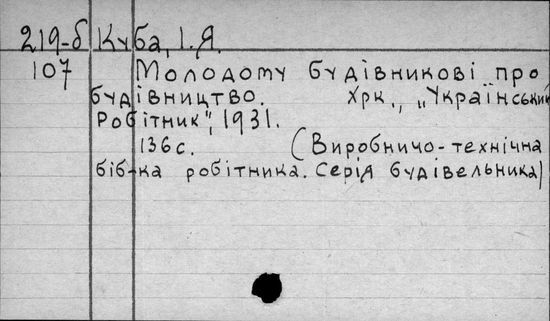 219-б Куба, І.Я.
107 Молодому будівникові про
будівництво. Хрк., „Український
Робітник", 1931.
136с. (Виробничо-технічна
біб-ка робітника. Серія будівельника)